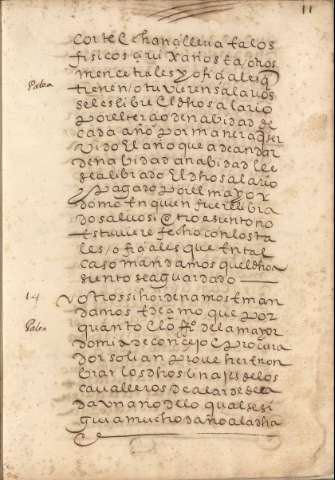 11
corte E chançilleria E a los
fisicos çirujanos E a otros
menestrales y ofiçiales q
tienen / o tuvieren salarios
se les libre El dho salario
por el terçio de nabidad de
cada año por manera q ser
vido El año que a de andar
de nabidad a nabidad le
sea librado El dho salario
y pagado por el mayor
domo En quien fuere libra
do salvo si otro asiento no
estuviere fecho con los ta
les / ofiçiales que En tal
caso mandamos que El dho a
siento sea guardado
14
otrossi hordenamos E man
damos E dezimos que por
quanto El ofiº del a mayor
domia de conçejo E procura
dor solian prover E non
brar los dhos linajes de los
cavalleros de alarde de ca
da un año de lo qual se si
guia mucho daño a la dha